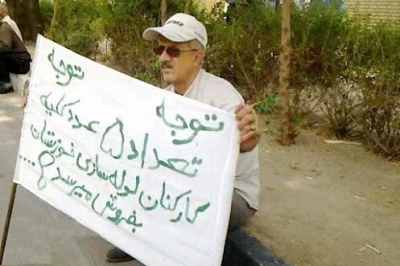 توجه توجه
تعداد ۵ عدد کلیه
کارکنان لوله سازی خوزستان
بفروش میرسد